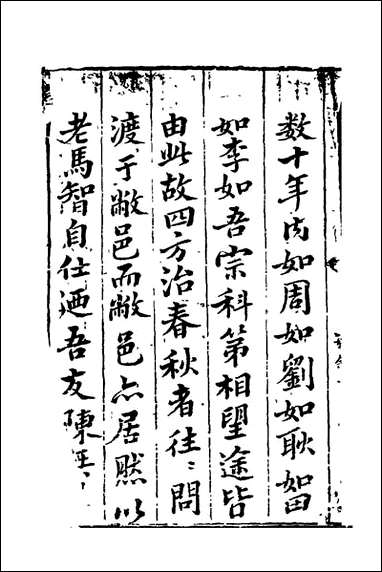 数十年内如周如劉如耿如田
如李如吾宗科第相望途皆
由此故四方治春秋者往〻問
渡于敝邑而敝邑亦居然以
老馬智自任廼吾友陳